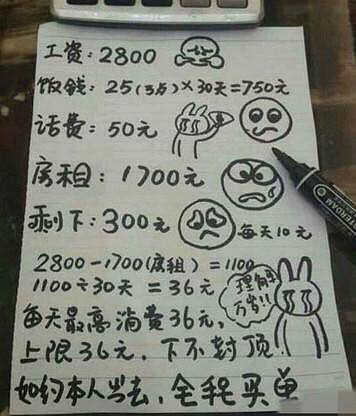 工资：2800
饭钱：25（3点）×30天＝750元
话费：50元
房租：1700元
剩下：300元 每天10元
2800－1700（房租）＝1100
1100÷30天＝36元
理解万岁!!
每天最高消费36元，
上限36元，下不封顶
如约本人出去，全程买单